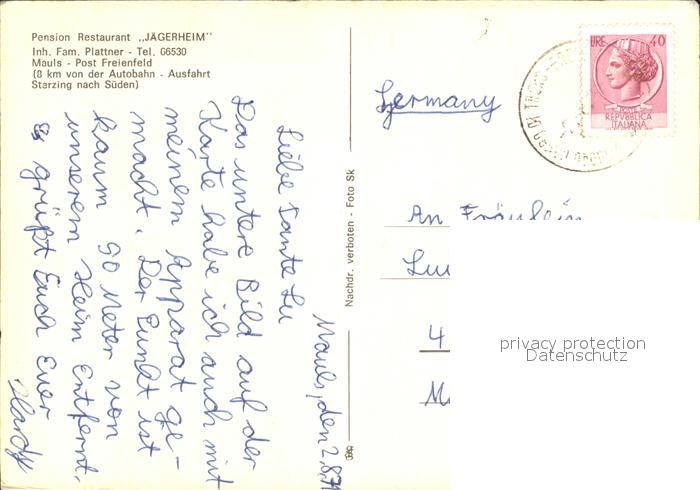 Pension Restaurant „JÄGERHEIM"
Inh. Fam. Plattner - Tel. 66530
Mauls - Post Freienfeld
(8 km von der Autobahn - Ausfahrt
Sterzing nach Süden)
Mauls, den 2.8.71
Liebe Tante Lu
Das untere Bild auf der
Karte habe ich auch mit
meinem Apparat ge-
macht. Der Punkt ist
kaum 90 Meter von
unserem Heim Entfernt.
Es grüßt Euch Euer
Hardy
Nachdr. verboten - Foto Sk
LIRE 40
POSTE
REPVBBLICA
ITALIANA
Germany
An Fräulein
4
M
privacy protection
Datenschutz